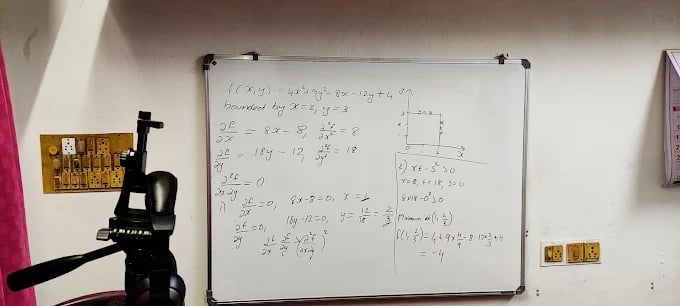 f(x,y) = 4x²+9y²-8x-12y+4
bounded by x=2, y=3
∂f/∂x = 8x-8, ∂²f/∂x² = 8
∂f/∂y = 18y-12, ∂²f/∂y² = 18
∂²f/∂x∂y = 0
1) ∂f/∂x = 0, 8x-8=0, x=1
∂f/∂y = 0, 18y-12=0, y = 12/18 = 2/3
∂f/∂x ∂f/∂y (∂²f/∂x∂y)²
y
3
0
x
2) rt-s²>0
r=8, t=18, s=0
8×18-0²>0
Minimum at (1, 2/3)
f(1, 2/3) = 4+9×4/9-8-12×2/3+4
= -4